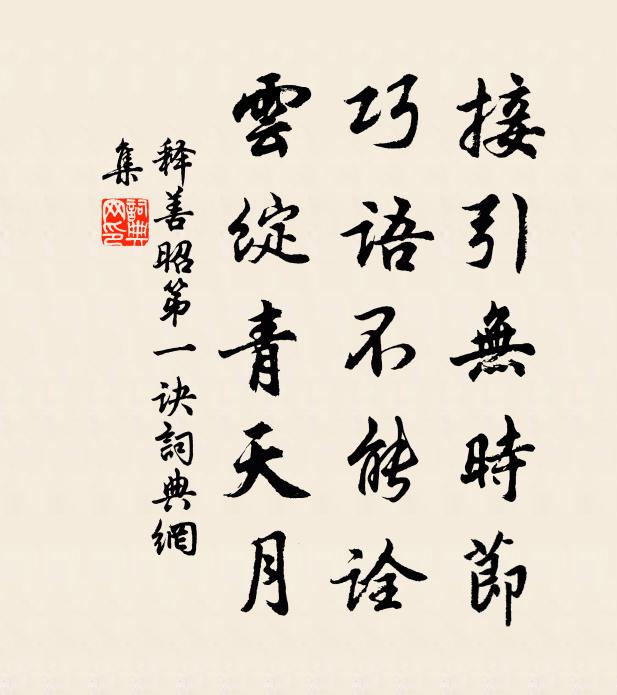 接引無時節
巧語不能詮
雲綻青天月
释善昭第一诀詞典網
集
詞典網印